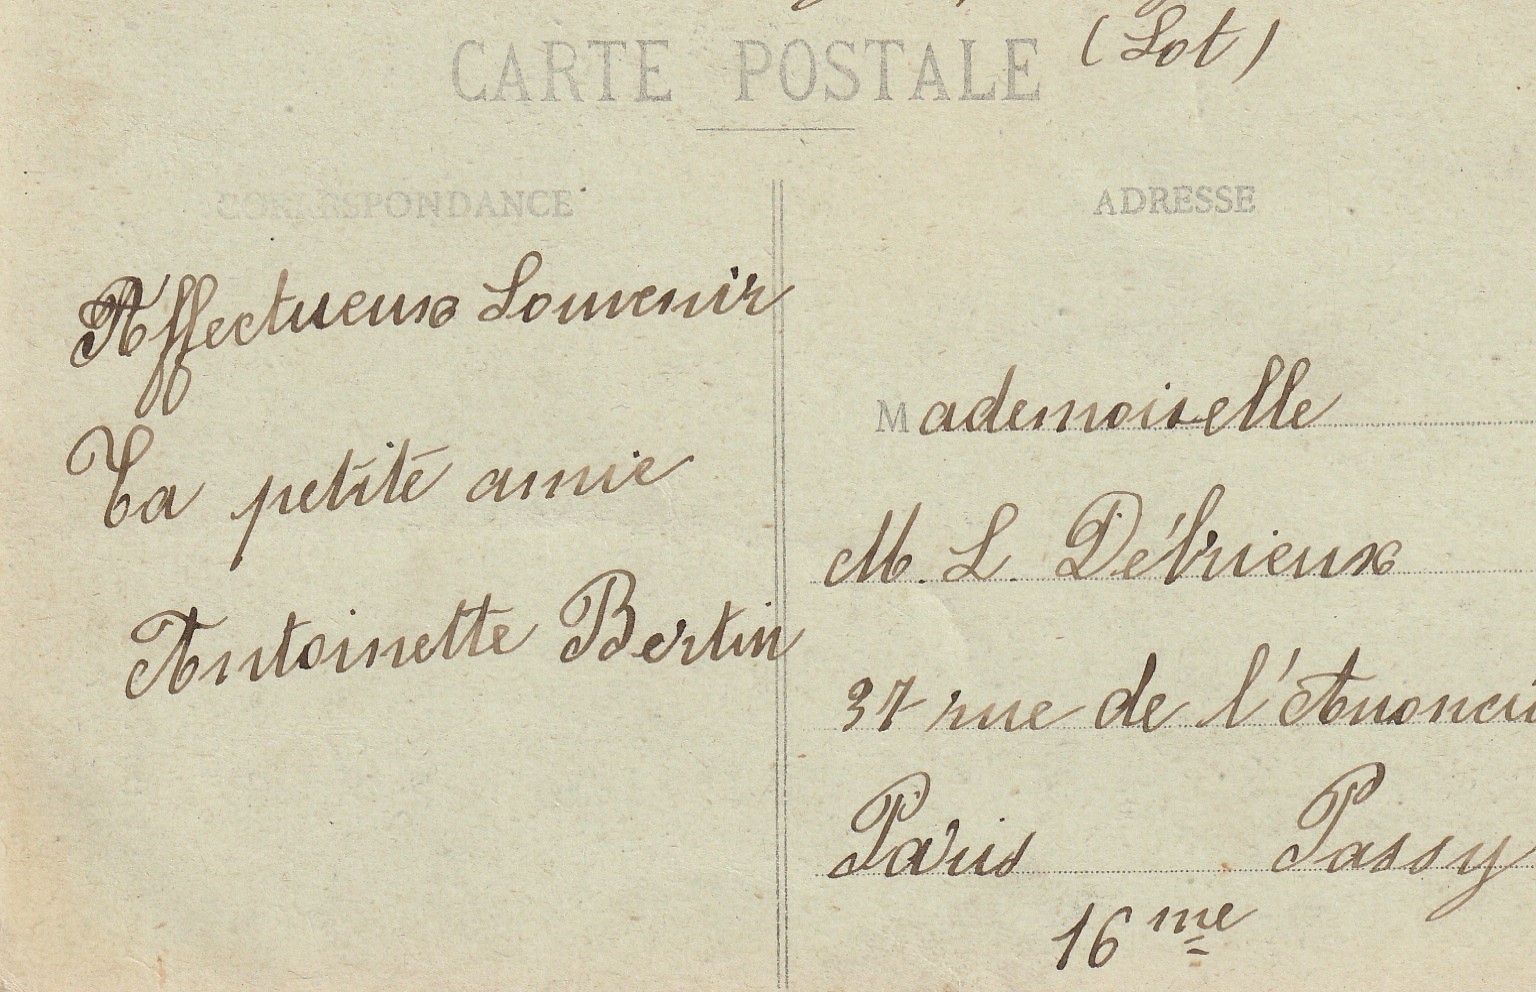 (Lot)
CARTE POSTALE
CORRESPONDANCE
ADRESSE
Affectueux Souvenir
Ta petite amie
Antoinette Bertin
Mademoiselle
M. L. Débrieux
37 rue de l'Anonci
Paris Passy
16me